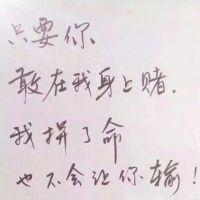 只要你
敢在我身上赌.
我拼了命
也不会让你输!